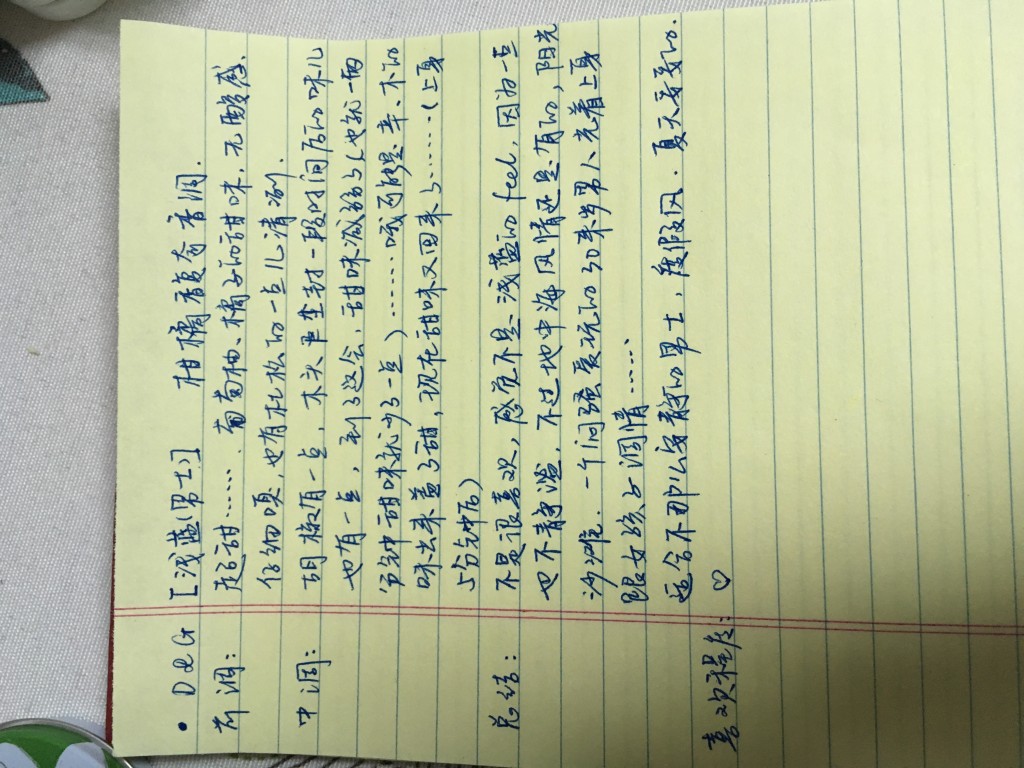 • D&G [浅蓝(男士)] 柑橘馥奇香调.
前调: 超甜……. 葡萄柚、橘子的甜味, 无酸感、
仔细嗅, 也有杜松的一点儿清冽.
中调: 胡椒有一点, 木头尘封一段时间后的味儿
也有一点, 到了这会, 甜味减弱了(也就一两
分钟甜味就少了一点)………哦可能是辛、木的
味出来盖了甜, 现在甜味又回来了……(上身
5分钟后)
总结: 不是很喜欢, 感觉不是浅蓝的feel, 因为一点
也不静谧, 不过地中海风情还是有的, 阳光
沙滩. 一个闷骚爱玩的30来岁男人光着上身
跟女孩子调情……
适合不那么安静的男士, 度假风. 夏天要的.
喜欢程度: ♡